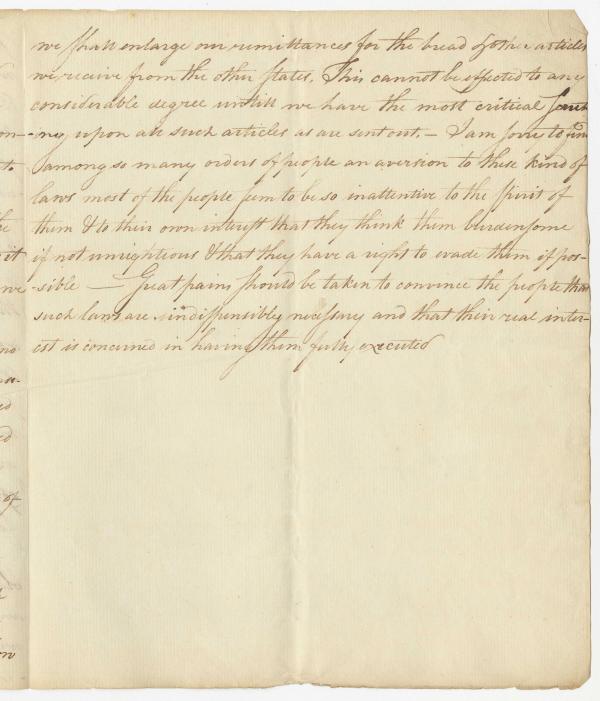 we shall enlarge our remittances for the bread & other articles
we receive from the other States. This cannot be effected to any
considerable degree untill we have the most critical scruti
-ny upon all such articles as are sent out. – I am sorre to find
among so many orders of people an aversion to these kind of
laws most of the people seem to be so inattentive to the spirit of
them & to their own interest that they think them burdensome
if not unrighteous & that they have a right to evade them if pos-
-sible — Great pains should be taken to convince the people that
such laws are indispensibly necessary and that their real inter-
est is concerned in having them fully executed